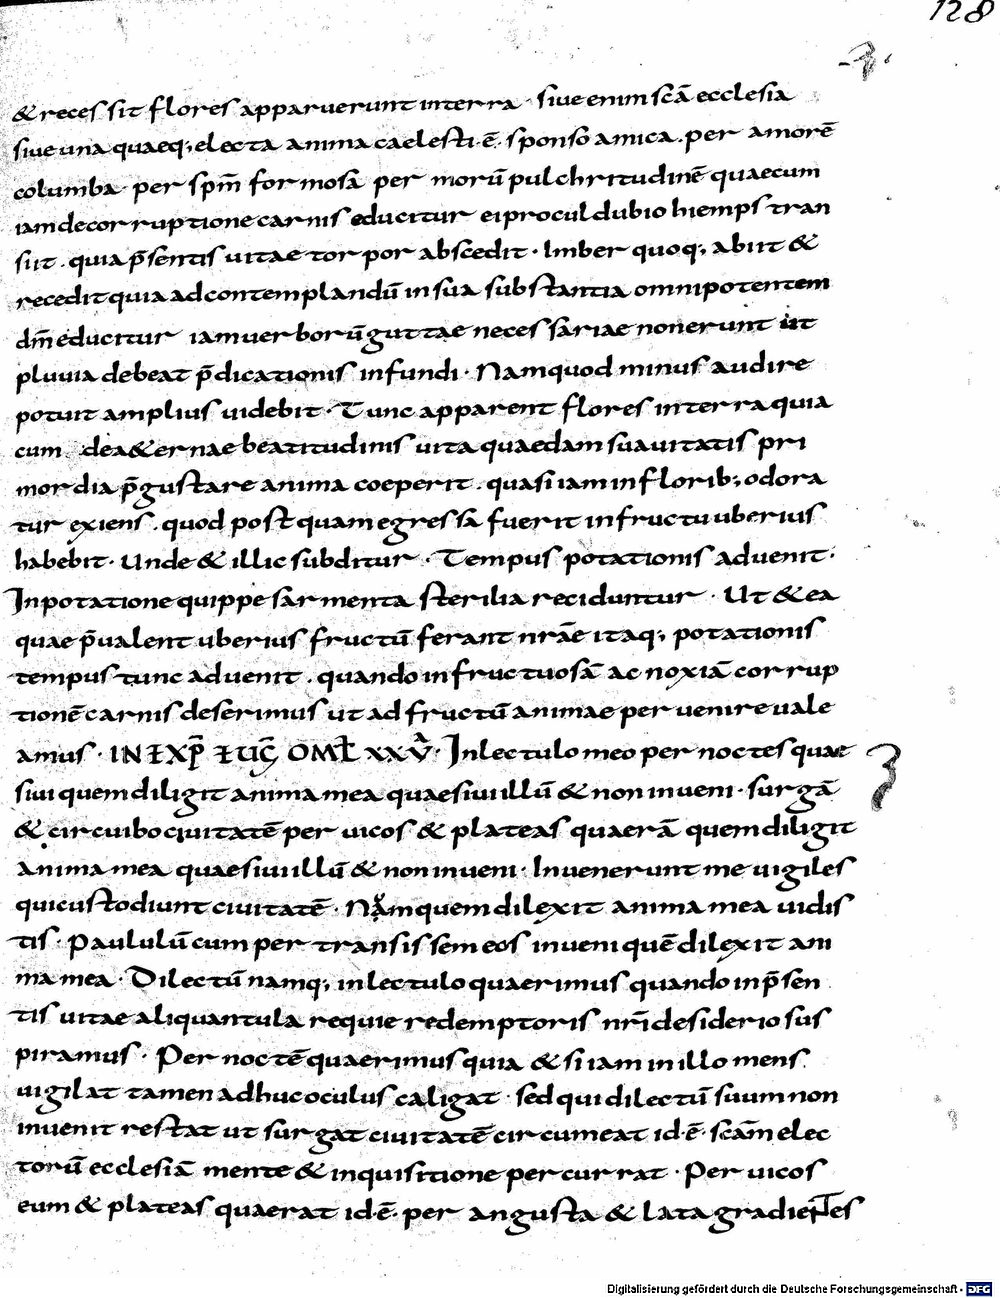 128
& recessit flores apparuerunt in terra · siue enim scā ecclesia
siue una quaeq; electa anima caelesti · ē · sponso amica · per amorē
columba · per spm̄ formosā per morū pulchritudinē quaecum
iam de corruptione carnis educitur ei procul dubio hiemps tran
siit · quia p̄sentis uitae torpor abscedit · Imber quoq; abiit &
recedit quia ad contemplandū in sua substantia omnipotentem
dm̄ educitur iam uerborū guttae necessariae non erunt ut
pluuia debeat p̄dicationis infundi · Nam quod minus audire
potuit amplius uidebit · Tunc apparent flores in terra quia
cum de a&ernae beatitudinis uita quaedam suauitatis pri
mordia p̄gustare anima coeperit · quasi iam in florib; odora
tur exiens · quod postquam egressa fuerit in fructu uberius
habebit · Unde & illic subditur · Tempus potationis aduenit ·
In potatione quippe sarmenta sterilia reciduntur · Ut & ea
quae p̄ualent uberius fructū ferant nrāe itaq; potationis
tempus tunc aduenit · quando infructuosā ac noxiā corrup
tionē carnis deserimus ut ad fructū animae peruenire uale
amus · IN EXP̄ EUḠ OMEL XXV · In lectulo meo per noctes quae
siui quem diligit anima mea quaesiui illū & non inueni · surgā
& circuibo ciuitatē per uicos & plateas quaerā quem diligit
anima mea quaesiui illū & non inueni · Inuenerunt me uigiles
qui custodiunt ciuitatē · Nam quem dilexit anima mea uidis
tis · Paululū cum pertransissem eos inueni quē dilexit ani
ma mea · Dilectū namq; in lectulo quaerimus quando in p̄sen
tis uitae aliquantula requie redemptoris nrī desiderio sus
piramus · Per noctē quaerimus quia & si iam in illo mens
uigilat tamen adhuc oculus caligat · sed qui dilectū suum non
inuenit restat ut surgat ciuitatē circumeat id · ē · scām elec
torū ecclesiā mente & inquisitione percurrat · Per uicos
eum & plateas quaerat id · ē · per angusta & lata gradientes
Digitalisierung gefördert durch die Deutsche Forschungsgemeinschaft - DFG